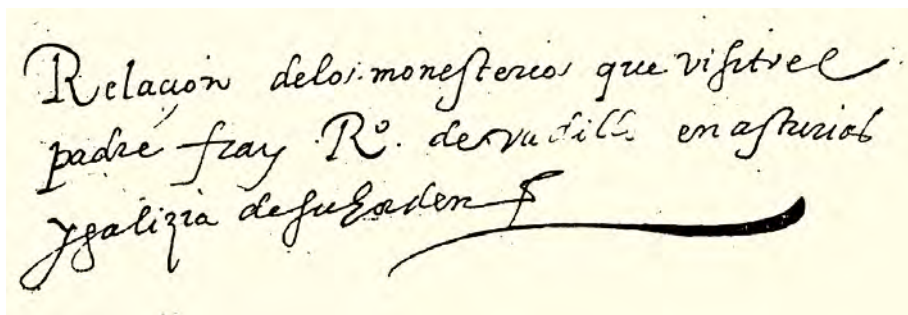 Relacion delos monesterios que visito el
padre fray Rº. de vadillo en asturias
y galizia de su horden